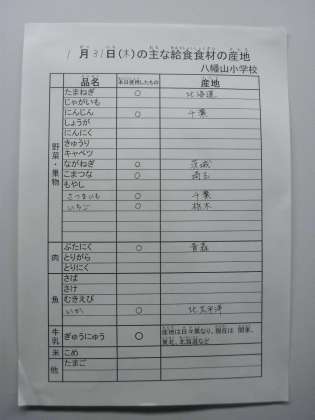 1月31日(木)の主な給食食材の産地
八幡山小学校
品名 本日使用したもの 産地
野菜・果物
たまねぎ ○ 北海道
じゃがいも
にんじん ○ 千葉
しょうが
にんにく
きゅうり
キャベツ
ながねぎ ○ 茨城
こまつな ○ 埼玉
もやし
さつまいも ○ 千葉
いちご ○ 栃木
肉
ぶたにく ○ 青森
とりがら
とりにく
魚
さば
さけ
むきえび
いか ○ 北太平洋
牛乳
ぎゅうにゅう ○ 産地は日々異なり、現在は 関東、
東北、北海道など
米
こめ
他
たまご